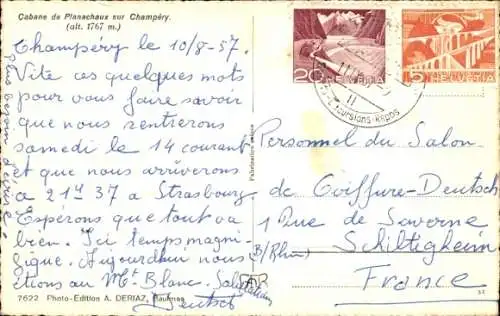 Cabane de Planachaux sur Champéry.
(alt. 1767 m.)
Champéry le 10/8-57.
Vite ces quelques mots
pour vous faire savoir
que nous rentrerons
samedi le 14 courant
et que nous arriverons
a 21 h 37 a Strasbourg
Espérons que tout va
bien. Ici temps magni-
fique. Aujourdhui nous
étions au Mt Blanc. Salutations
Deutsch
Plus besoin d'écrire
7622 Photo-Edition A. DERIAZ, Baulmes
20 HELVETIA
15 HELVETIA
Personnel du Salon
de Coiffure-Deutsch
1 Rue de Saverne
B/Rhin) Schiltigheim
France